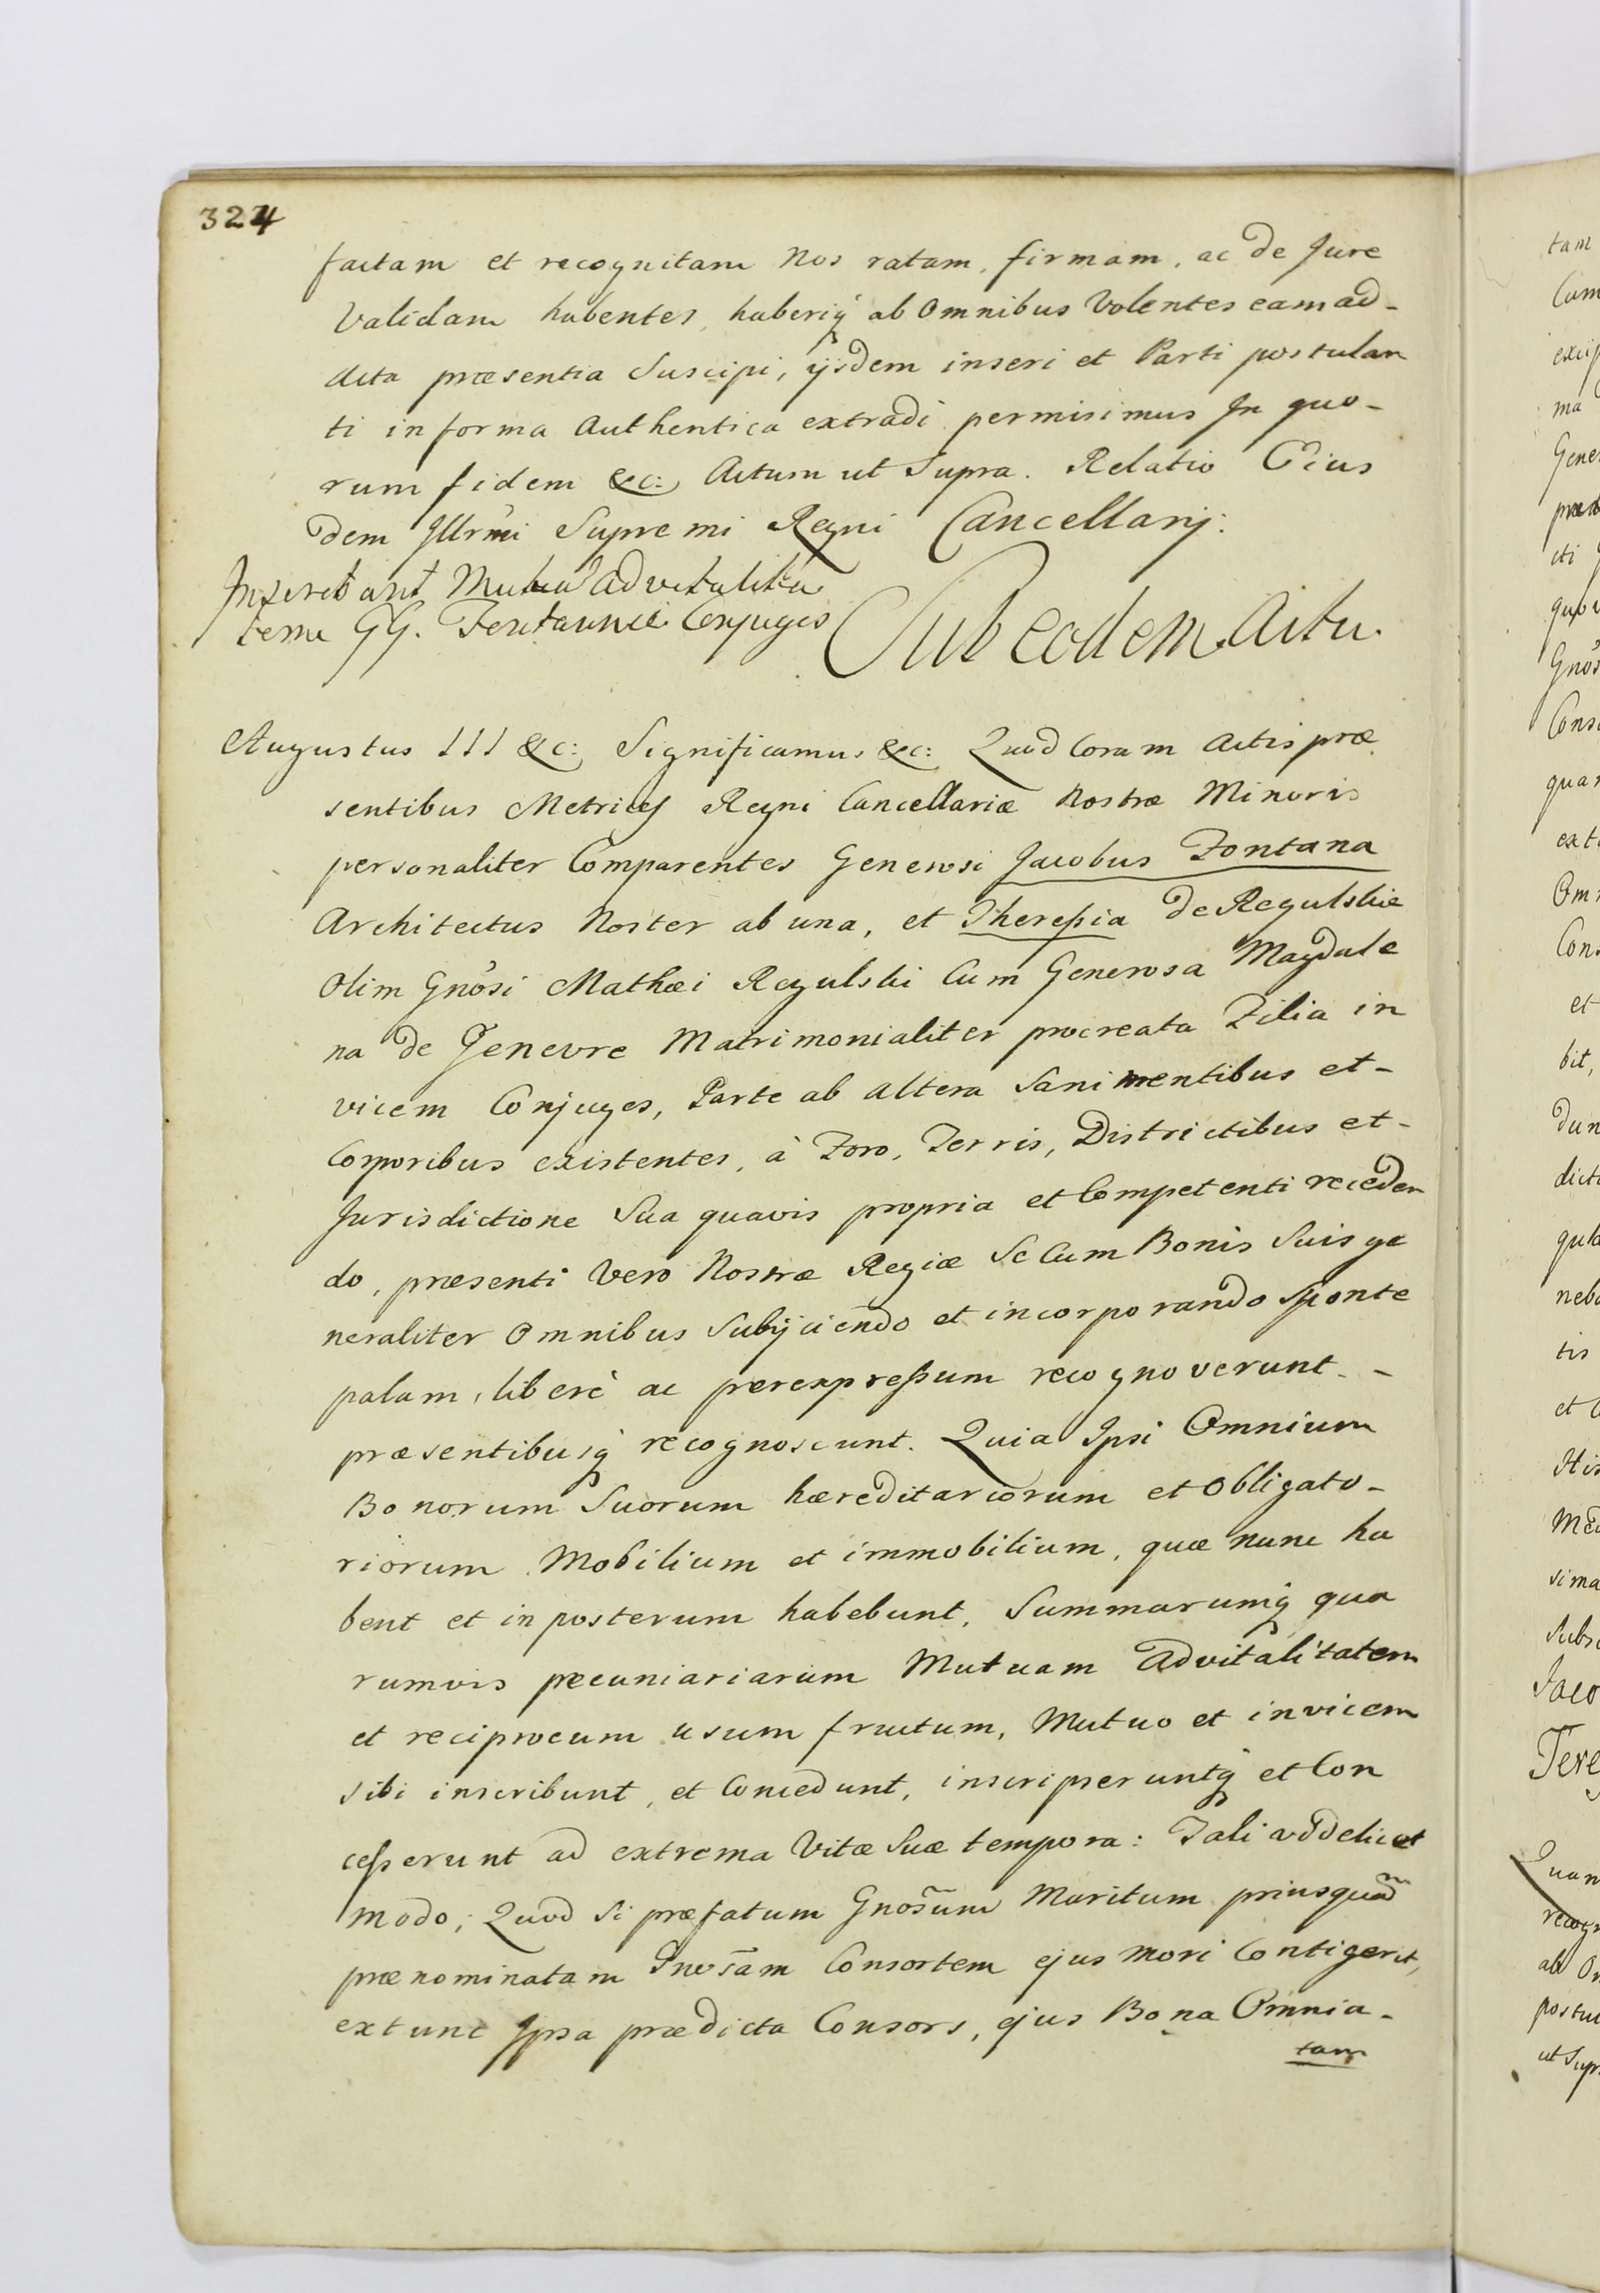 324
factam et recognitam Nos ratam, firmam, ac de Jure
Validam habentes, haberiq́ ab Omnibus Volentes eam ad-
Acta præsentia Suscipi, ijsdem inseri et Parti postulan
ti in forma Authentica extradi permisimus Jn quo-
rum fidem &c: Actum ut Supra. Relatio Eius
dem Jllrmi Supremi Regni Cancellarij.
Inscribunt Mutuã advitalita
tem GG. Conjuges
Sub eodem Actu.
Augustus III &c: Significamus &c: Quod Coram Actis præ
sentibus Metrices Regni Cancellariæ Nostræ Minoris
personaliter Comparentes Generosi Jacobus Fontana
Architectus Noster ab una, et Theresia de Regulskie
Olim Gnosi Mathæi Regulski Cum Generosa Magdale
na de Jenevre Matrimonialiter procreata Filia in
vicem Conjuges, Parte ab altera Sani mentibus et-
Corporibus existentes, à Foro, Terris, Districtibus et-
Jurisdictione Sua quavis propria et Competenti receden
do, præsenti Vero Nostræ Regiæ Se Cum Bonis Suis ge
neraliter Omnibus Subijciendo et incorporando sponte
palam, liberè ac per expressum recognoverunt. -
præsentibusq́ recognoscunt. Quia Ipsi Omnium
Bonorum Suorum hæreditariorum et Obligato-
riorum Mobilium et immobilium, quæ nunc ha
bent et in posterum habebunt, Summarumq́ qua
rumvis pecuniariarum Mutuam Advitalitatem
et reciprocum usum fructum, Mutuo et invicem
sibi inscribunt, et Concedunt, inscripseruntq́ et Con
cesserunt ad extrema Vitæ Suæ tempora: Tali videlicet
modo; Quod Si præfatum Gnosum Maritum priusquã
prænominatam Gnosam Consortem ejus mori Contigerit,
ex tunc Ipsa prædicta Consors, ejus Bona Omnia-
tam